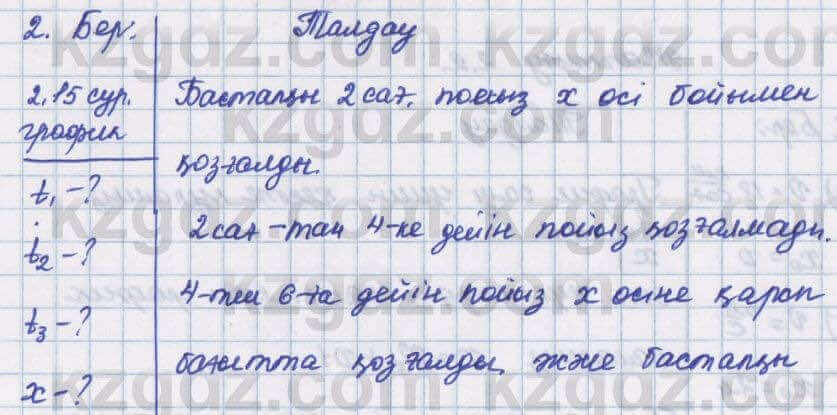 2. Бер.
Талдау
2.15 сур.
график
t₁ -?
t₂ -?
t₃ -?
x -?
Бастапқы 2 сағ. пойыз x осі бойымен
қозғалды.
2 сағ -тан 4-ке дейін пойыз қозғалмады.
4-тен 6-ға дейін пойыз x осіне қарсы
бағытта қозғалды және бастапқы
kzgdz.com